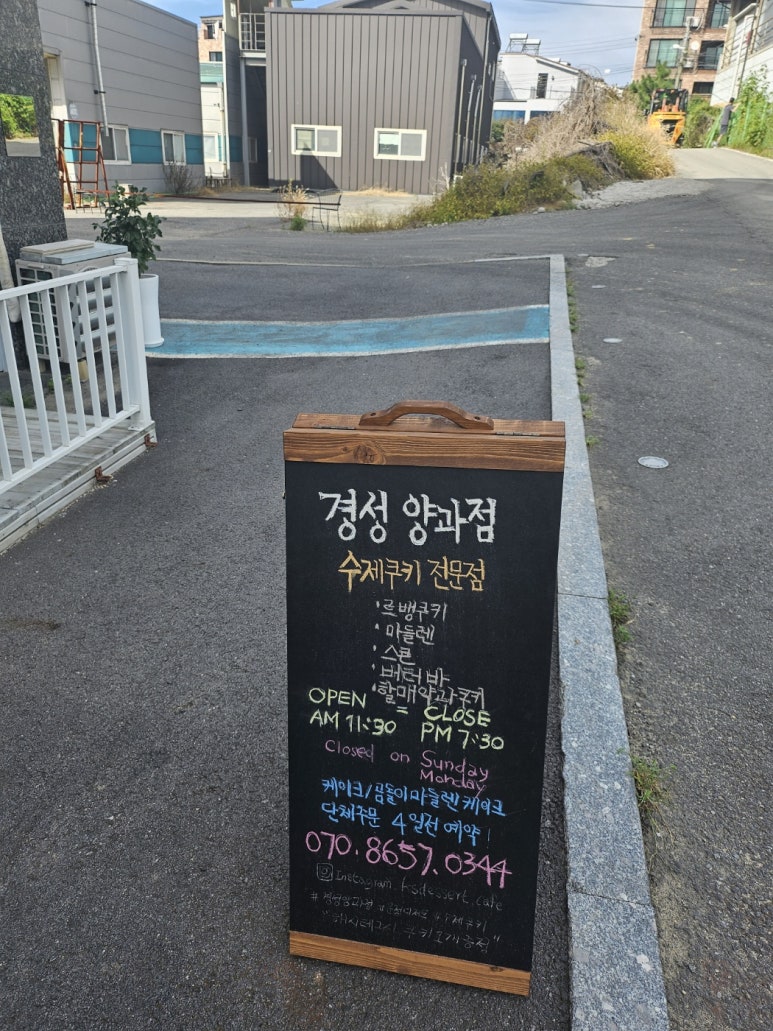 경성 양과점
수제쿠키 전문점
· 르뱅쿠키
· 마들렌
· 스콘
· 버터바
· 할매약과쿠키
OPEN = CLOSE
AM 11:30 PM 7:30
Closed on Sunday
Monday
케이크/곰돌이마들렌케이크
단체주문 4일전 예약!
070.8657.0344
Instagram. ksdessert_cafe
#경성양과점 #수제쿠키
"해시태그시 쿠키1개증정"